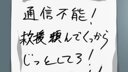 通信不能!
救援頼んでくっから
じっとしてろ!